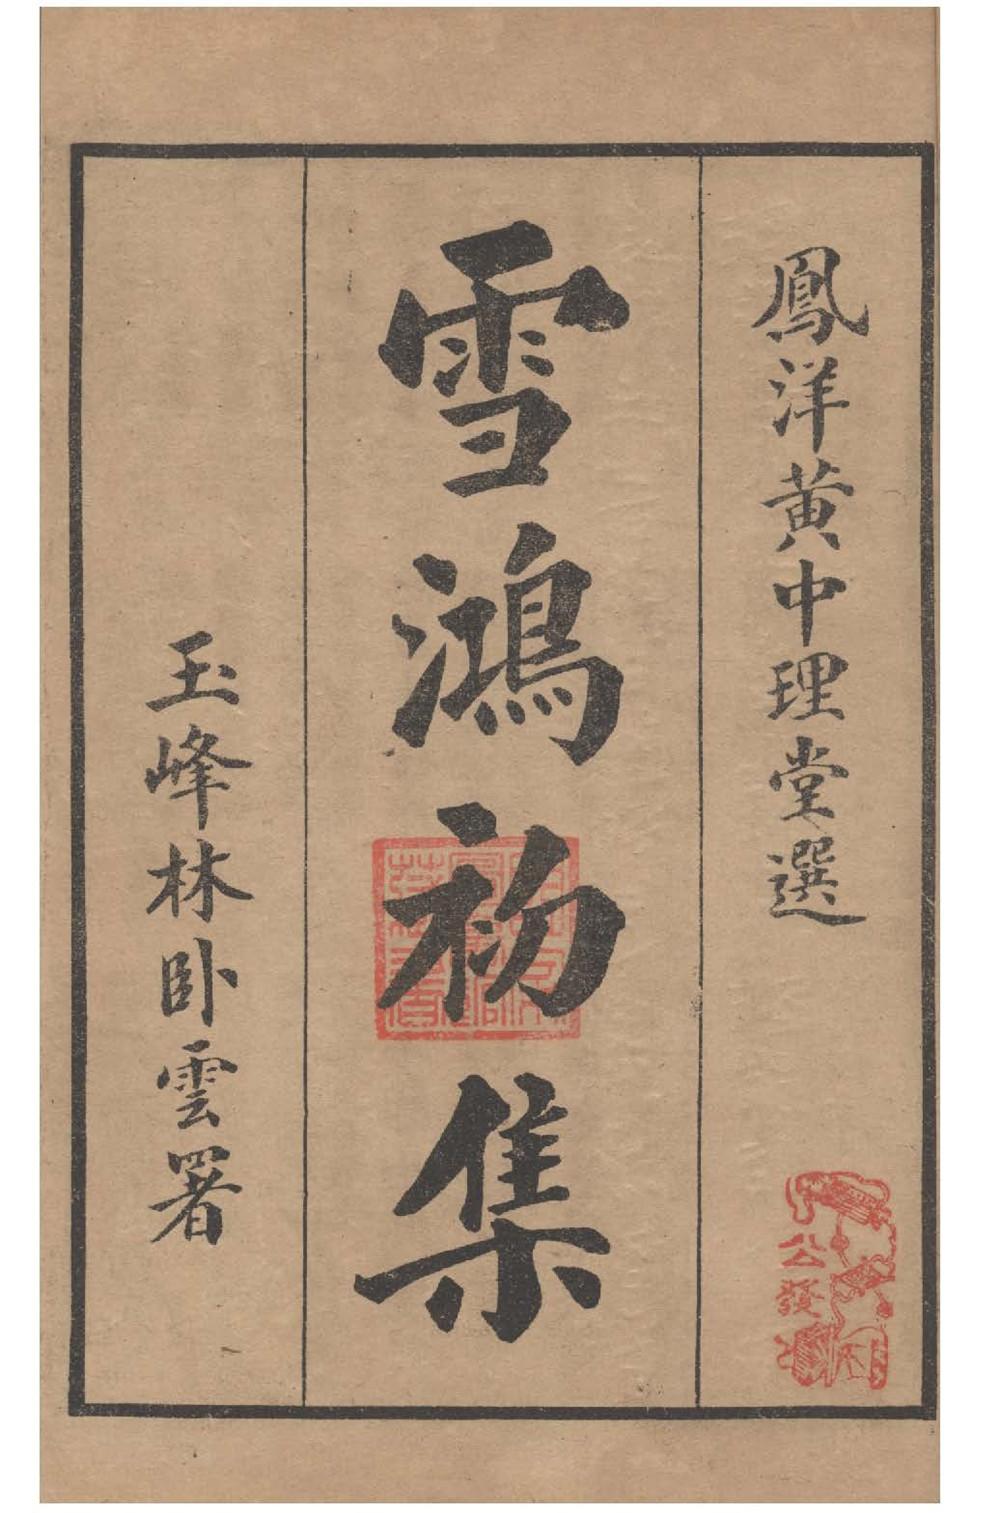 鳳洋黃中理堂選
雪鴻初集
玉峰林卧雲署
公發